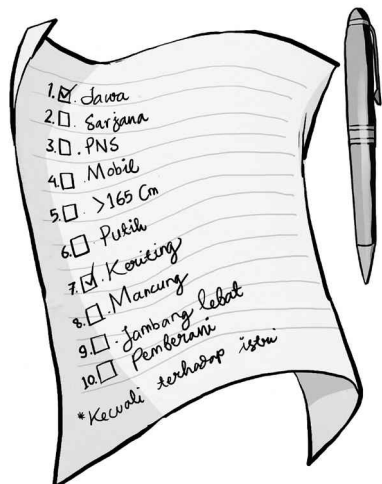 1. ☑. Jawa
2. ☐. Sarjana
3. ☐. PNS
4. ☐ Mobil
5. ☐. >165 Cm
6. ☐ Putih
7. ☑. Keriting
8. ☐. Mancung
9. ☐. Jambang lebat
10. ☐ Pemberani
*Kecuali terhadap istri